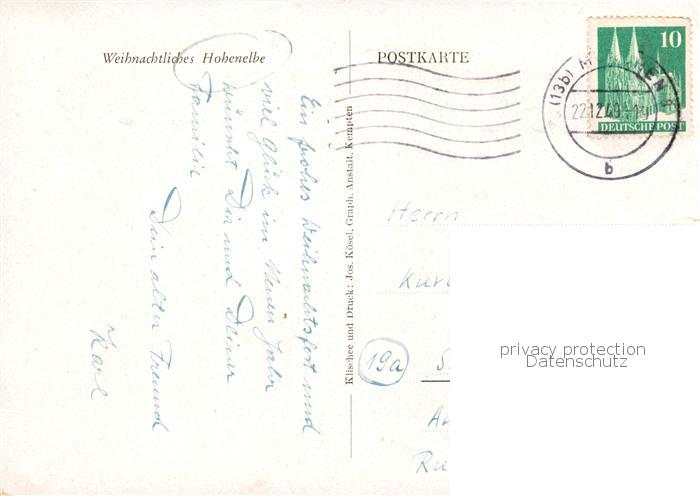 Weihnachtliches Hohenelbe
POSTKARTE
10
DEUTSCHE POST
(13b) M
22.12.49
b
Ein frohes Weihnachtsfest und
viel Glück im Neuen Jahr
wünscht Dir und Deiner
Familie
Dein alter Freund
Karl
Klischee und Druck: Jos. Kösel, Graph. Anstalt, Kempten
Herrn
Kur
19a
S
A
Ru
privacy protection
Datenschutz